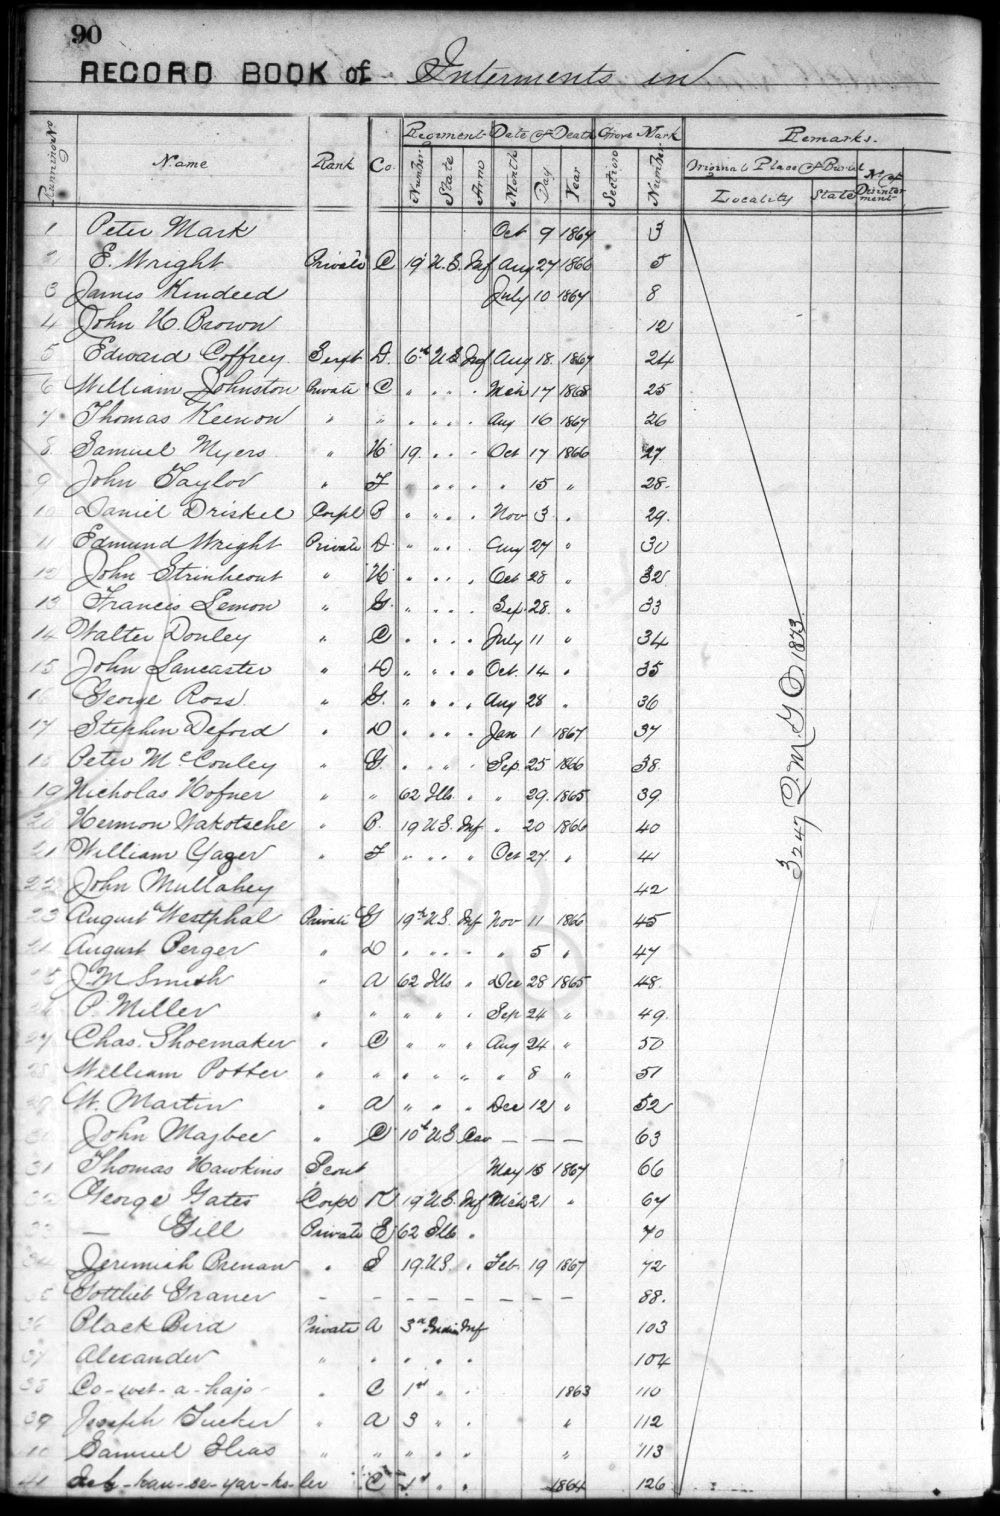 90
RECORD BOOK of Interments in
Running No Name Rank Co. Regiment Date of Death Grave Mark Remarks.
Number State Arm Month Day Year Section Number Original Place of Burial No of Disinterment
Locality State
1 Peter Mark Oct 9 1864 3
2 E. Wright Private C 19 U.S. Inf Aug 27 1866 5
3 James Kindeed July 10 1867 8
4 John H. Brown 12
5 Edward Coffrey Sergt D. 6th U.S. Inf Aug 18. 1867 24
6 William Johnston Private C " " " Mch 17 1868 25
7 Thomas Keenon " " " " " Aug 16 1867 26
8. Samuel Myers " H 19. " " Oct 17 1866 27
9 John Taylor " F " " " " 15 " 28.
10 Daniel Driskel Corpl B " " " Nov 3 " 29.
11 Edmund Wright Private D " " " Aug 27 " 30
12 John Strinheout " H " " " Oct 28 " 32
13 Frances Lemon " G. " " " Sep. 28. " 33
14 Walter Donley " C " " " July 11 " 34
15 John Lancaster " D " " " Oct. 14 " 35
16 George Ross " G. " " " Aug 28 " 36
17 Stephen Deford " D " " " Jan 1 1867 37
18 Peter McCouley " G. " " " Sep. 25 1866 38.
19 Nicholas Hofner " " 62 Ills. " " 29. 1865 39
20 Hermon Wakotsche " B. 19 U.S. Inf " 20 1866 40
21 William Yager " F " " " Oct 27. " 41
22 John Mullahey 42
23 August Westphal Private G 19th U.S. Inf Nov 11 1866 45
24 August Berger " D " " " " 5 " 47
25 J. M Smith " A 62 Ills " Dec 28 1865 48.
26 P. Miller " " " " " Sep 24 " 49.
27 Chas. Shoemaker " C " " " Aug 24. " 50
28 William Potter " " " " " " 8 " 51
29 W. Martin " A " " " Dec 12 " 52
30 John Maybee " C 10th U.S Cav — — — 63
31 Thomas Hawkins Scout May 15 1867 66
32 George Gates Corpl K 19 U.S. Inf Mch 21 " 67
33 — Gill Private E 62 Ills " 70
34 Jeremiah Brenan " E 19. U.S. " Feb. 19 1867 72
35 Gottlieb Graner – – – – – – – – 88.
36 Black Bird Private A 3d Indian Inf 103
37 Alexander " " " " " 104
38 Co-wet-a-hajo " C 1st " " 1863 110
39 Joseph Tucker " A 3 " " " 112
40 Samuel Elias " " " " " " 113
41 C 1st " " 1864 126
3247 Q.M.G.O 1873.